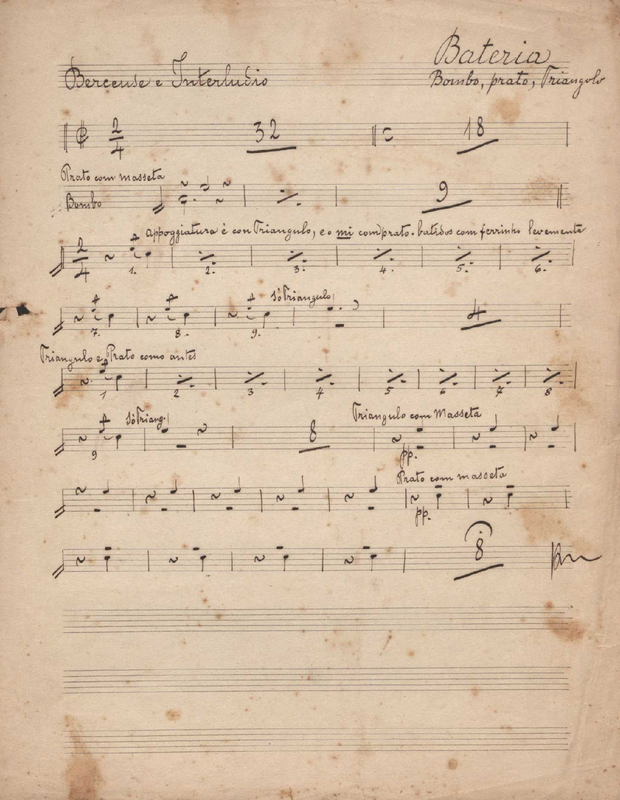 Bateria
Berceuse e Interludio
Bombo, prato, Triangolo
2 4 32 C 18
Prato com masseta
Bombo 9
appoggiatura é con Triangulo, e o mi com prato. batidos com ferrinho levemente
2 4 1. 2. 3. 4. 5. 6.
Só Triangulo
7. 8. 9. 4
Triangulo e Prato como antes
1 2 3 4 5 6 7 8
Só Triang. Triangulo com Masseta
9 8 pp.
Prato com masseta
pp.
8
Fim